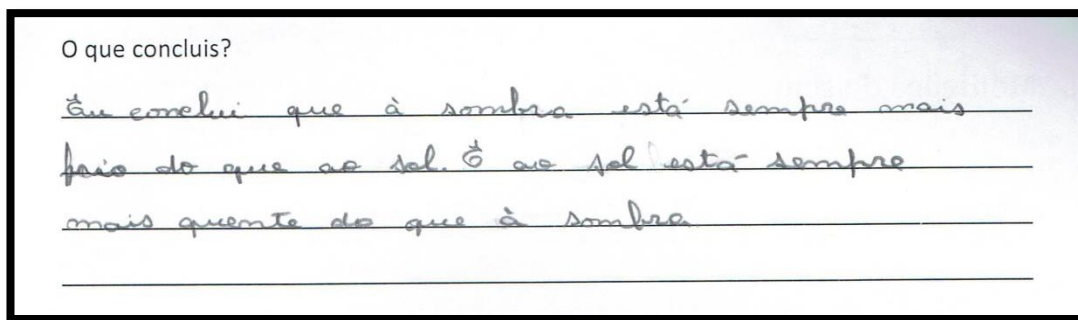 O que concluis?
Eu conclui que à sombra está sempre mais
frio do que ao sol. E ao sol está sempre
mais quente do que à sombra